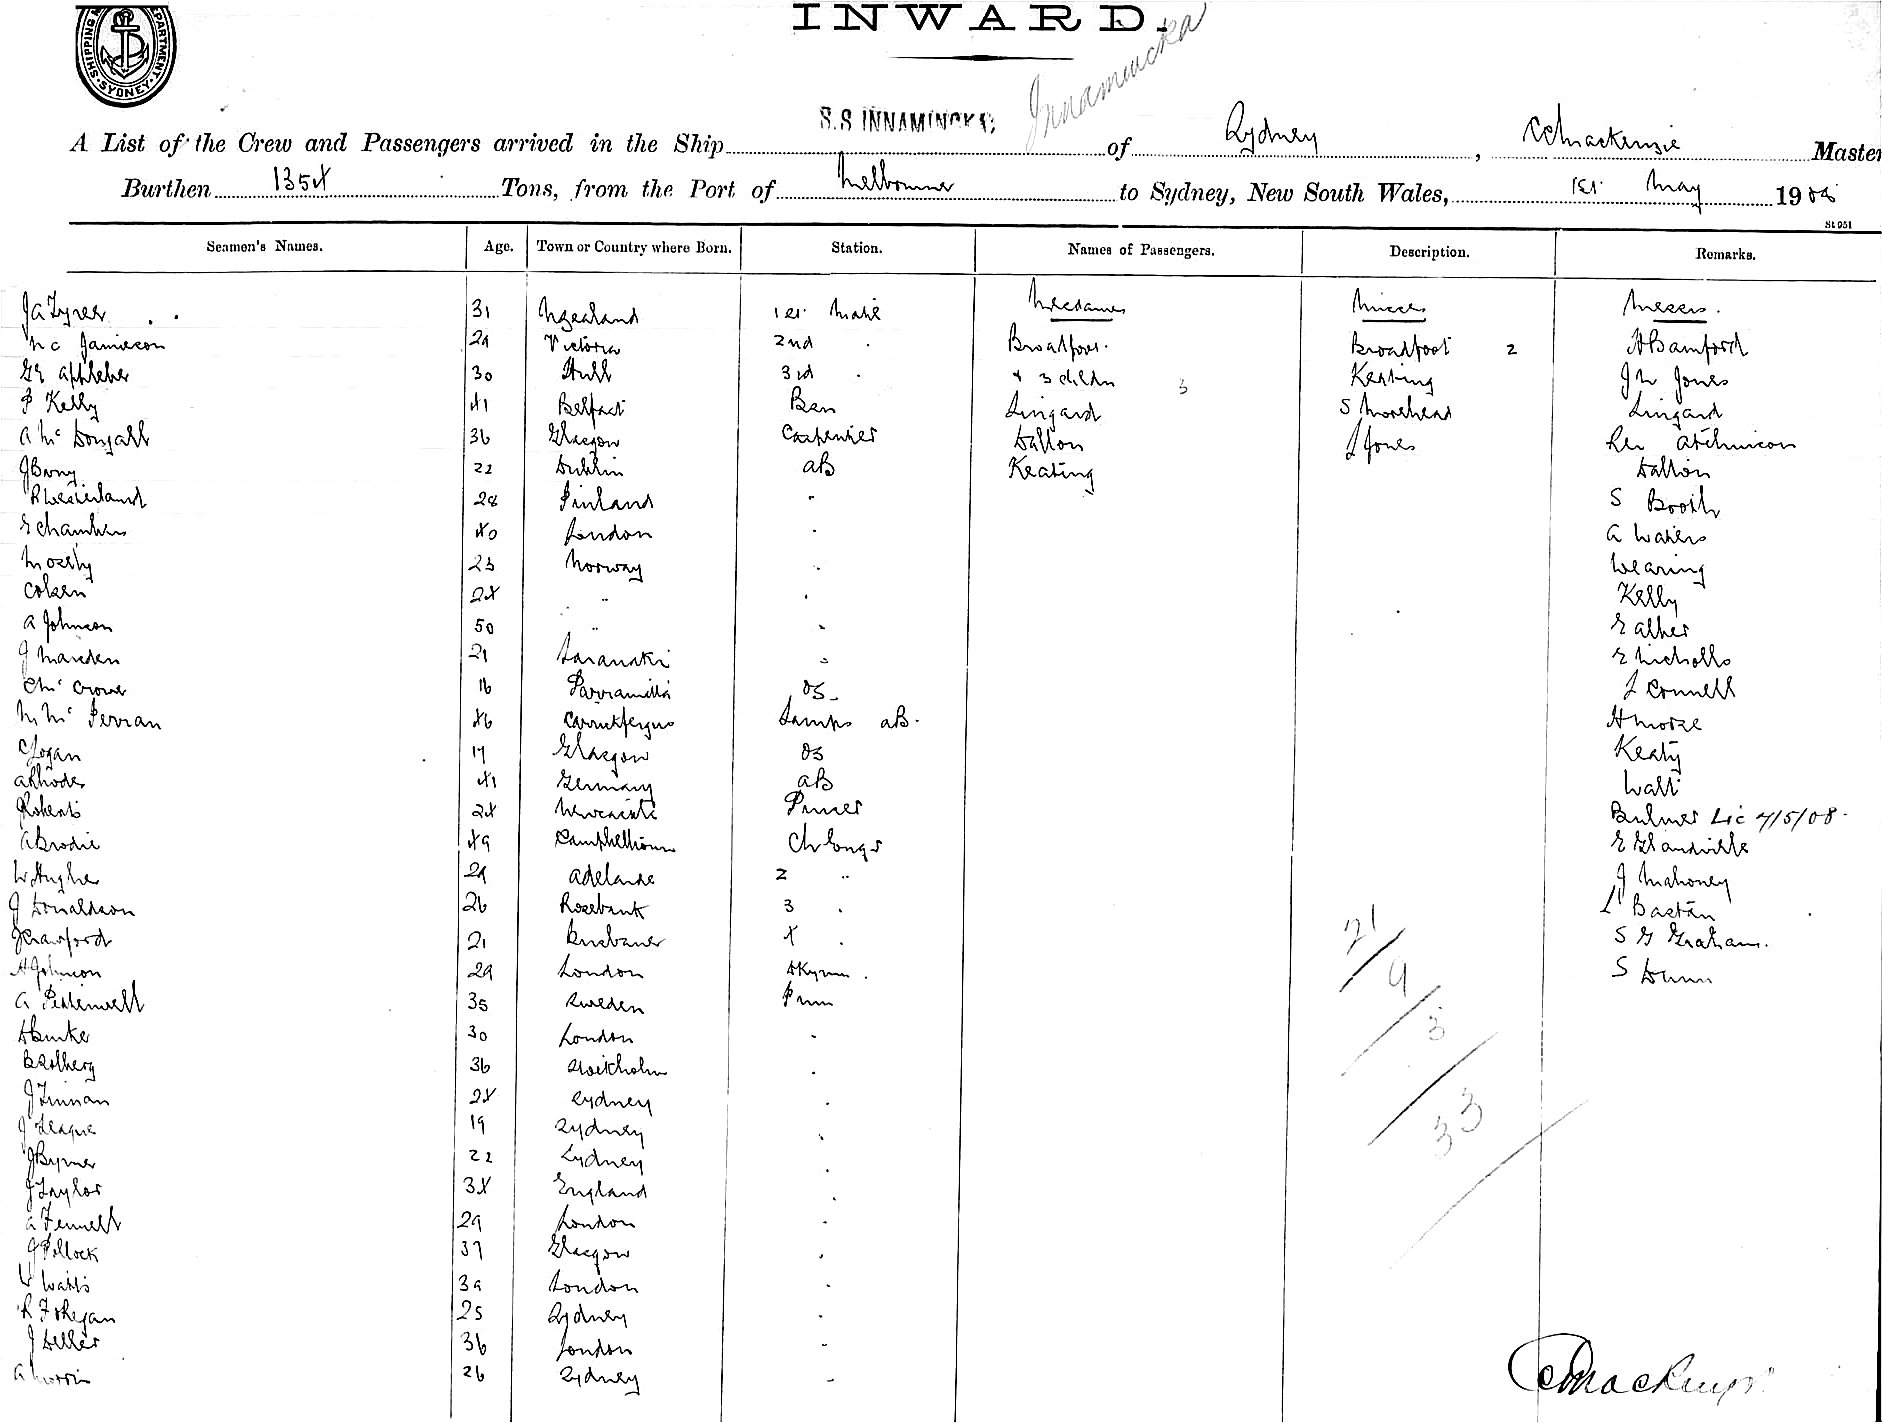 SHIPPING DEPARTMENT SYDNEY
INWARD.
S.S INNAMINCKA
Innamincka
A List of the Crew and Passengers arrived in the Ship of Sydney, C Mackenzie Master
Burthen 1354 Tons, from the Port of Melbourne to Sydney, New South Wales, 1st May 1908
St 951
Seamen's Names. Age. Town or Country where Born. Station. Names of Passengers. Description. Remarks.
J A Tyrer 31 N Zealand 1st Mate Mesdames Misses Messrs.
Jamieson 29 Victoria 2nd Broadfoot Broadfoot 2 H Bamford
Appleber 30 Hull 3rd + 3 childn 3 Keating J N Jones
P Kelly 41 Belfast Bsn Lingard S Morehead Lingard
A Mc Dougall 36 Glasgow Carpenter Dalton J Jones Rev
J Barry 22 Dublin AB Keating Dalton
R Westerland 28 Finland " S Booth
E Chambers 40 London " A Waters
Moseby 23 Norway " Wearing
C Olsen 24 " " Kelly
A Johnson 50 " " E Alber
J Marsden 21 Taranaki " E Nicholls
C Mc Crowe 16 Parramatta OS J Connell
M Mc Ferran 46 Carrickfergus Lamps AB. H Morse
C Logan 17 Glasgow OS Keaty
A Rhodes 41 Germany AB Watt
J Roberts 24 Newcastle Bulmer Lic 4/5/08
A Brodie 49 Campbelltown Ch Engr E Glandville
W Hughes 29 Adelaide 2 " J Mahoney
J Donaldson 26 Rosebank 3 " L Bastin
J Crawford 21 Brisbane 4 " S G Graham.
H Johnson 29 London Dkymn. S Dunn
A Pettenwell 35 Sweden Frmn
H Burke 30 London "
36 Stockholm "
J Finnan 24 Sydney "
J League 19 Sydney "
J Byrnes 22 Sydney "
J Taylor 34 England "
A Fennell 29 London "
J Pollock 37 Glasgow "
W Watts 39 London "
R F O'Regan 25 Sydney "
J Deller 36 London "
A Morris 26 Sydney "
21
9
3
33
C Mackenzie